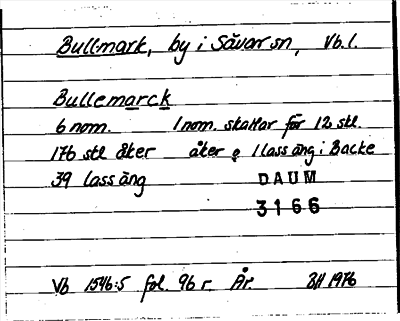 Bullmark, by i Sävar sn, Vb.l.
Bullemarck
6 nom. 1 nom. skattar för 12 stl.
176 stl åker åker o 1 lass äng i Backe
39 lass äng DAUM
3166
Vb 1546:5 fol. 96 r. År BH 1976